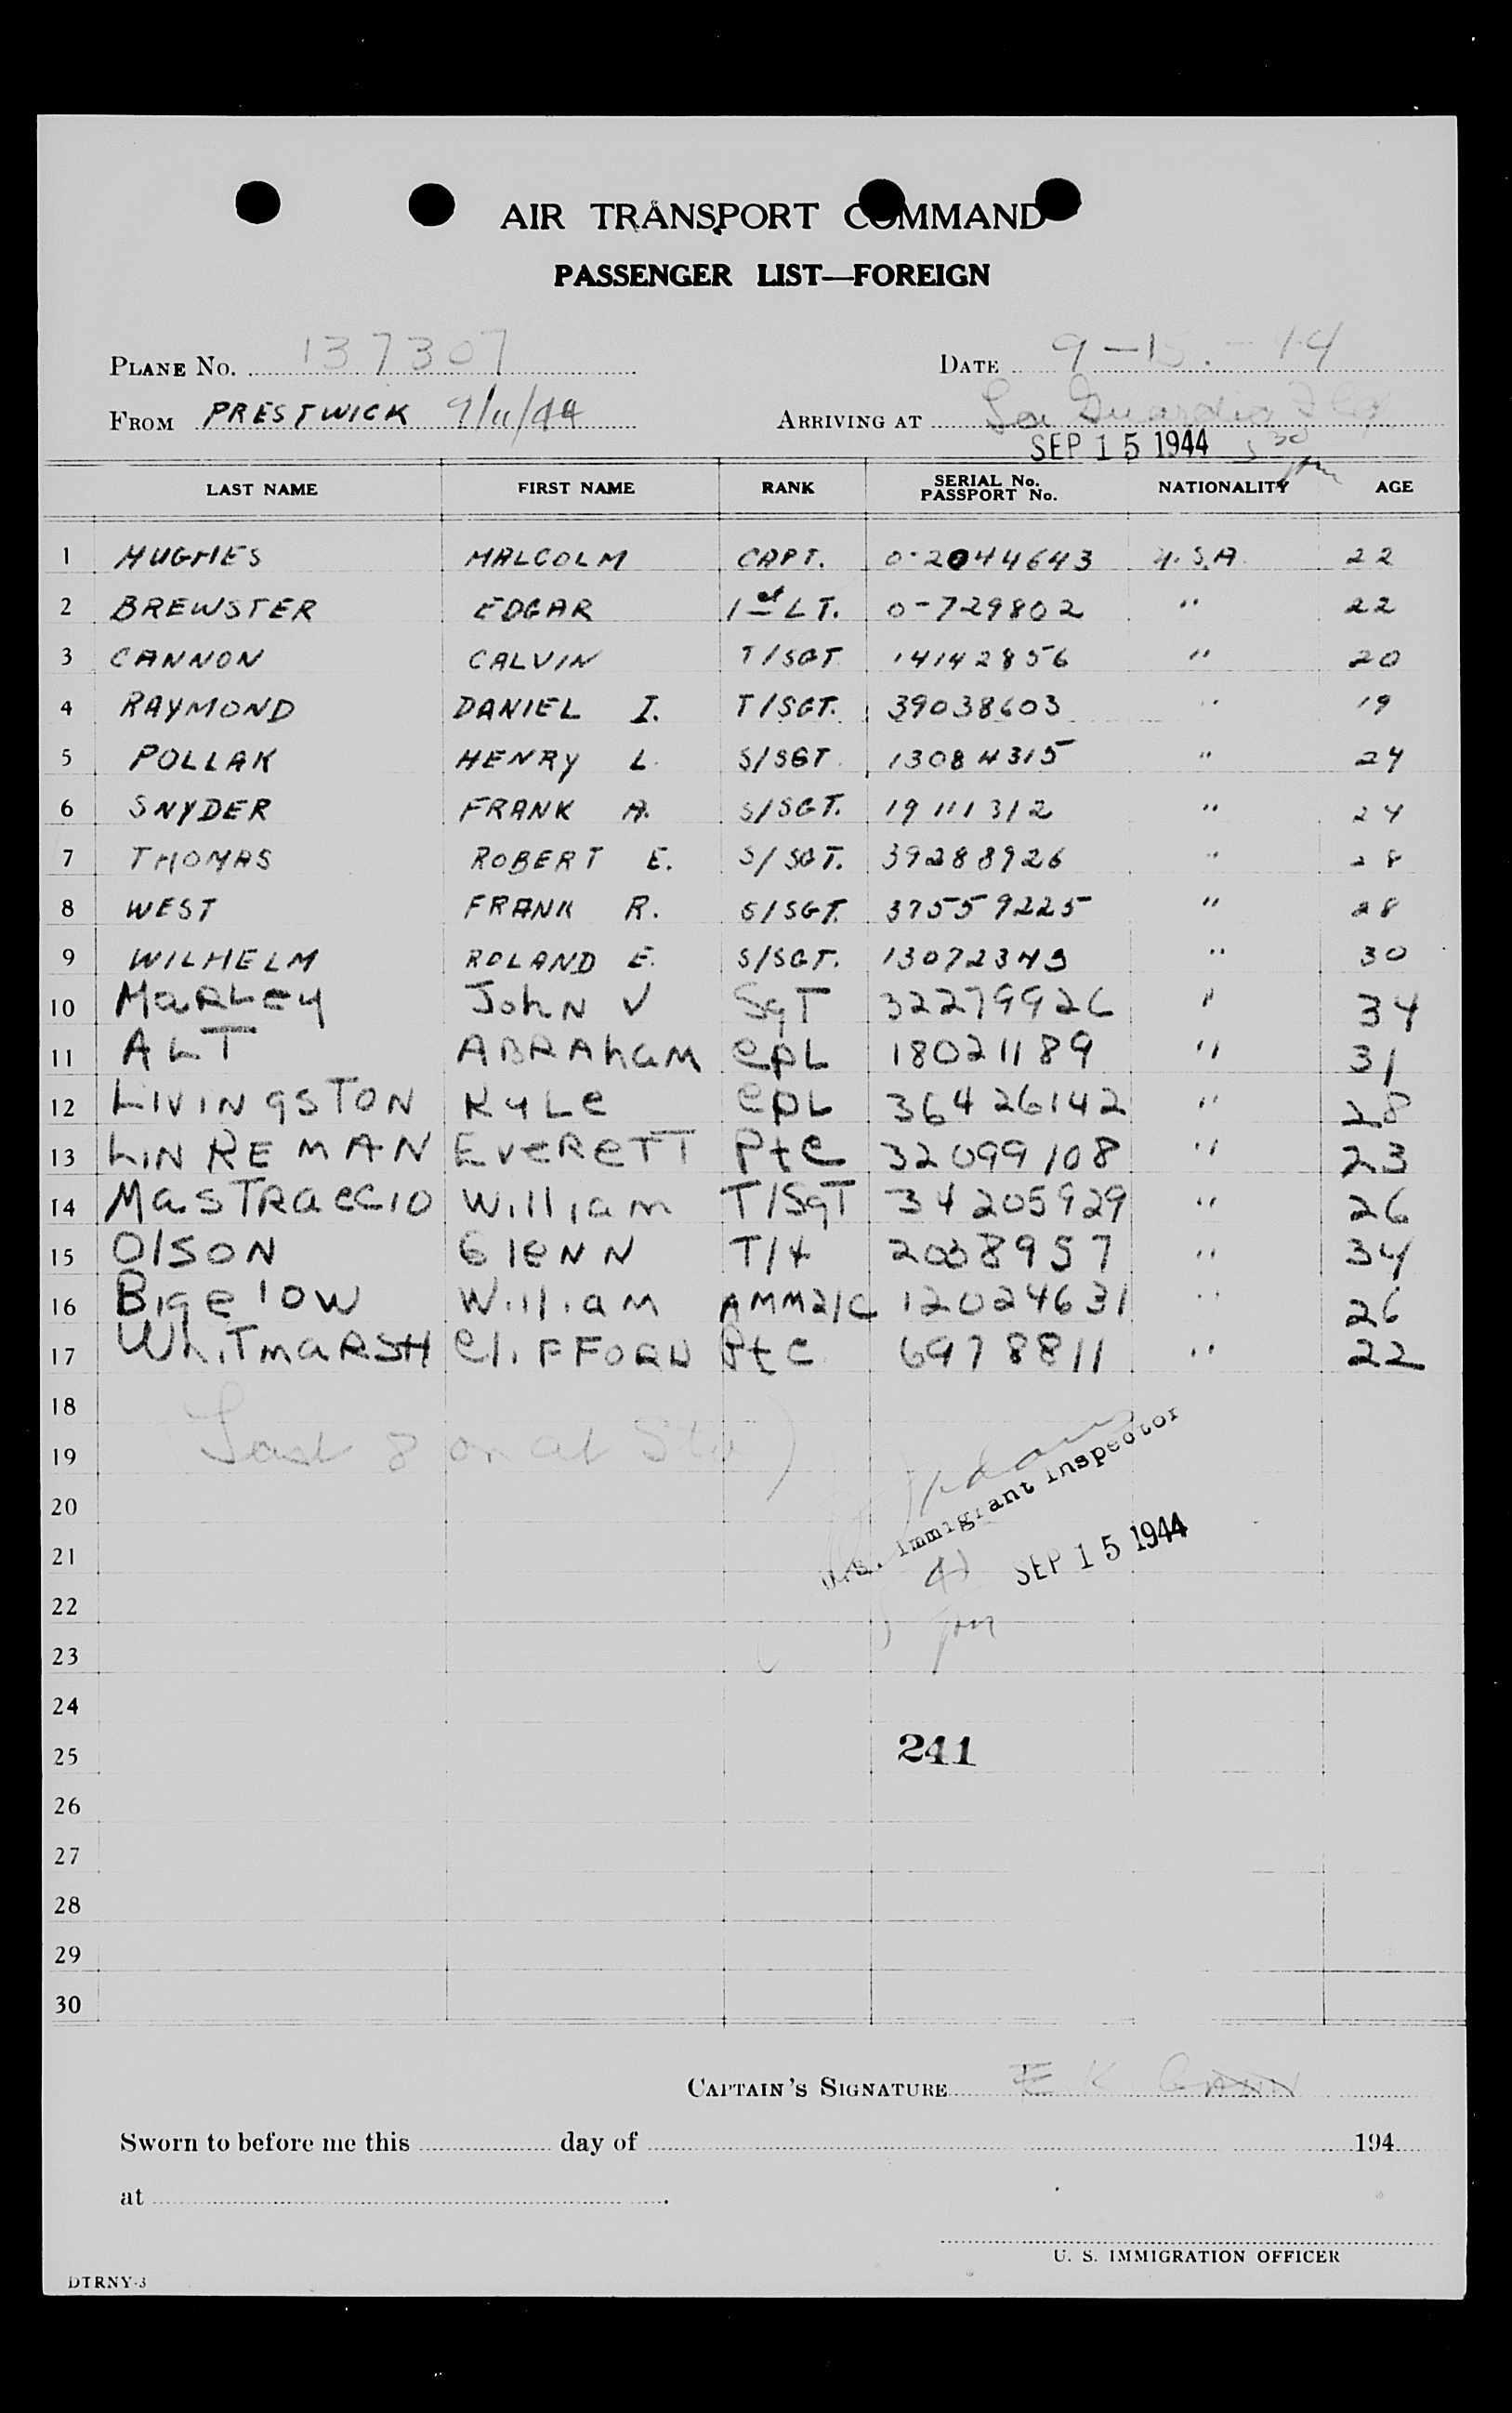 AIR TRANSPORT COMMAND
PASSENGER LIST—FOREIGN
PLANE No. 137307 DATE 9-15-44
FROM PRESTWICK 9/11/44 ARRIVING AT La Guardia Fld
SEP 15 1944 5 30 pm
LAST NAME FIRST NAME RANK SERIAL No. PASSPORT No. NATIONALITY AGE
1 HUGHES MALCOLM CAPT. 0-2044643 U.S.A. 22
2 BREWSTER EDGAR 1st LT. 0-729802 " 22
3 CANNON CALVIN T/SGT 14142856 " 20
4 RAYMOND DANIEL I. T/SGT. 39038603 " 19
5 POLLAK HENRY L. S/SGT. 13084315 " 24
6 SNYDER FRANK A. S/SGT. 19111312 " 24
7 THOMAS ROBERT E. S/SGT. 39288926 " 28
8 WEST FRANK R. S/SGT. 37559225 " 28
9 WILHELM ROLAND E. S/SGT. 13072349 " 30
10 MaRLey JohN V SgT 32279926 " 34
11 ALT ABRAhaM cpL 18021189 " 31
12 LIVINgSTON KyLe cpL 36426142 " 28
13 LINREMAN EveReTT Pfc 32099108 " 23
14 MasTRaccIO William T/SgT 34205929 " 26
15 OlSON GleNN T/4 2008957 " 34
16 Bigelow William AMM2/C 12024631 " 26
17 WhiTmaRSH CliFFORD Pfc 6978811 " 22
18
19 Last 8 on at
20
21
22
23
24
25
26
27
28
29
30
U.S. Immigrant Inspector
SEP 15 1944
pm
241
CAPTAIN'S SIGNATURE E K GANN
Sworn to before me this day of 194
at
U. S. IMMIGRATION OFFICER
DTRNY-3